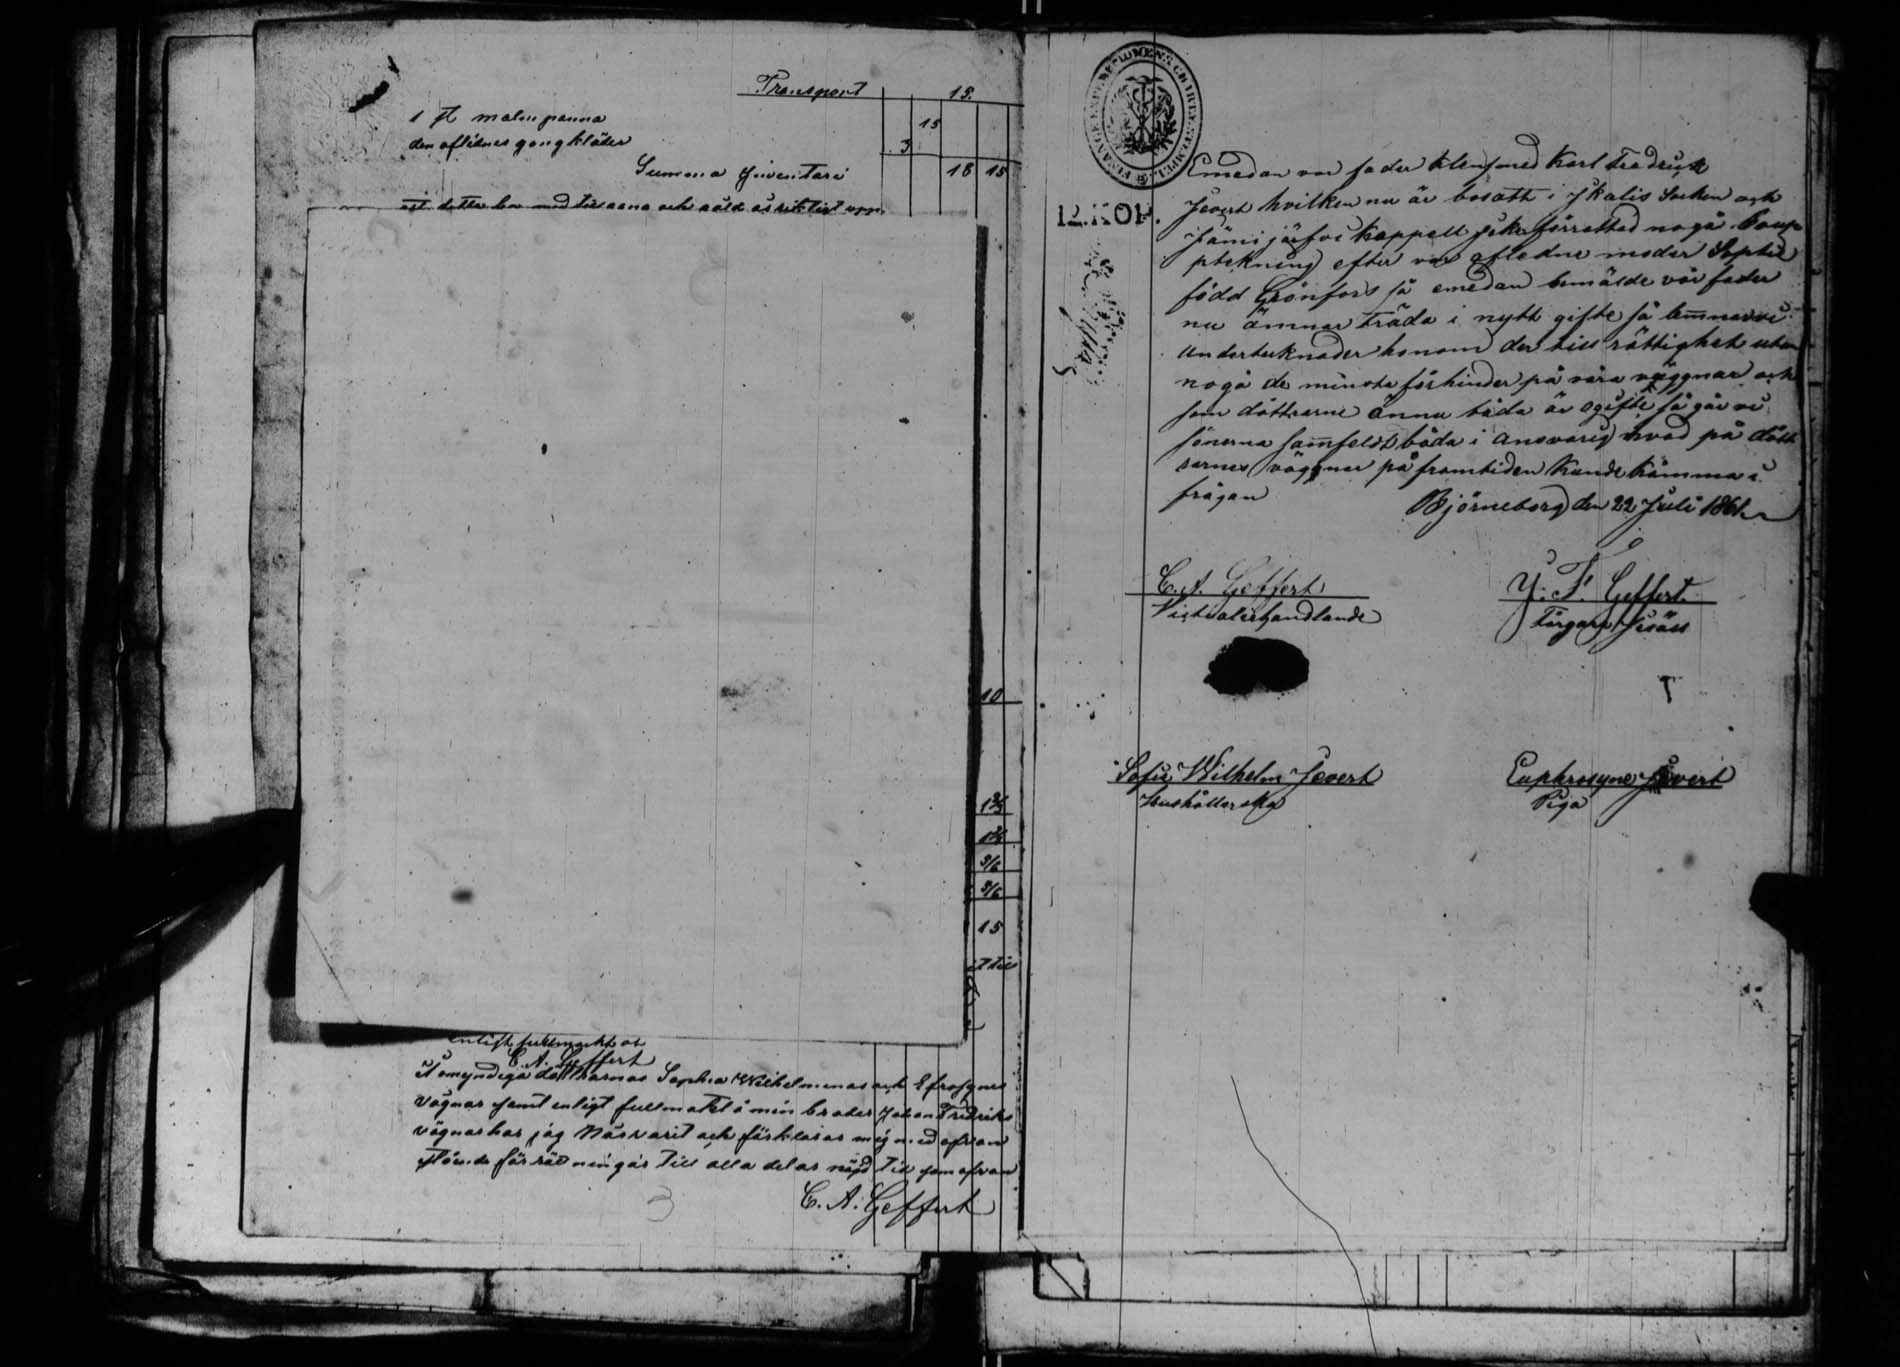 Transport 13.
1 st malmpanna 15
den aflidnes gongkläder 3
Summa Inventari 18 15
10
1 2/3
1 2/3
5/6
5/6
15
enligt fullmarkt at
C. A. Geffert
å omyndiga döttrarnas Sophia Wilhelminas och Efrosynes
vägnar samt enligt fullmakt å min broder Johan Fredriks
vägnar har jag Närvarit och förklarar mig med ofvan
stående förrättningar till alla delar nöjd tid som ofvan
C. A. Geffert
12. KOP.
Emedan vor fader Klensmed Karl Fredrick
Jevert hvilken nu är bosatt i Ikalis Socken och
Jämijärfvi Kappell icke förrattad nogå Boup
ptekning efter vår afledne moder Sophie
född Grönfors så emedan bemälde vår fader
nu ämnar träda i nytt gifte så lemnar vi
undertecknader honom der till rättighet utan
nogå de minsta förhinder på våra väggnar och
som döttrarne ännu båda är ogifte så går vi
sönerna samfeldt båda i ansvarig hvad på dött
rarnes väggnar på framtiden kunde komma i
frågan
Björneborg den 22 Juli 1861
C. A. Geffert
Victualiehandlande
J. F. Geffert
Färgare Gesäll
Sofie Wilhelm Jevert
Hushållerska
Euphrosyne Jevert
Piga